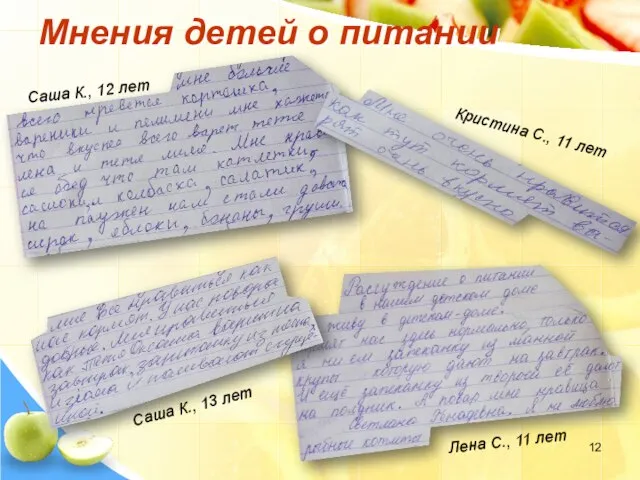 Мнения детей о питании
Саша К., 12 лет
мне больше
всего нравется картошка,
вареники и пелимени мне кажется
что вкуснее всего варет тетя
лена и тетя лиля. Мне нрави
обед что там катлетки,
сасиски, колбаска, салатик,
на паужен нам стали давать
сырок, яблоки, бананы, груши.
Кристина С., 11 лет
Мне очень нравится
как тут кормят ва-
рят очень вкусно
мне всё нравиться как
кормят. У нас повора
добрые. Мне нравиться
как тётя Оксанка
завтрак, запеканку из
изюма и поливают сгущё-
нкой.
Саша К., 13 лет
Рассуждение о питании
в нашем детском доме
живу в детском-доме.
нас здесь нормально, только
я ни ем запеканку из манной
крупы которую дают на завтрак.
И ещё запеканку из творога её дают
на полдник. А повар мне нравица
Светлана Генадевна. Я не люблю
рыбные котлеты
Лена С., 11 лет
12